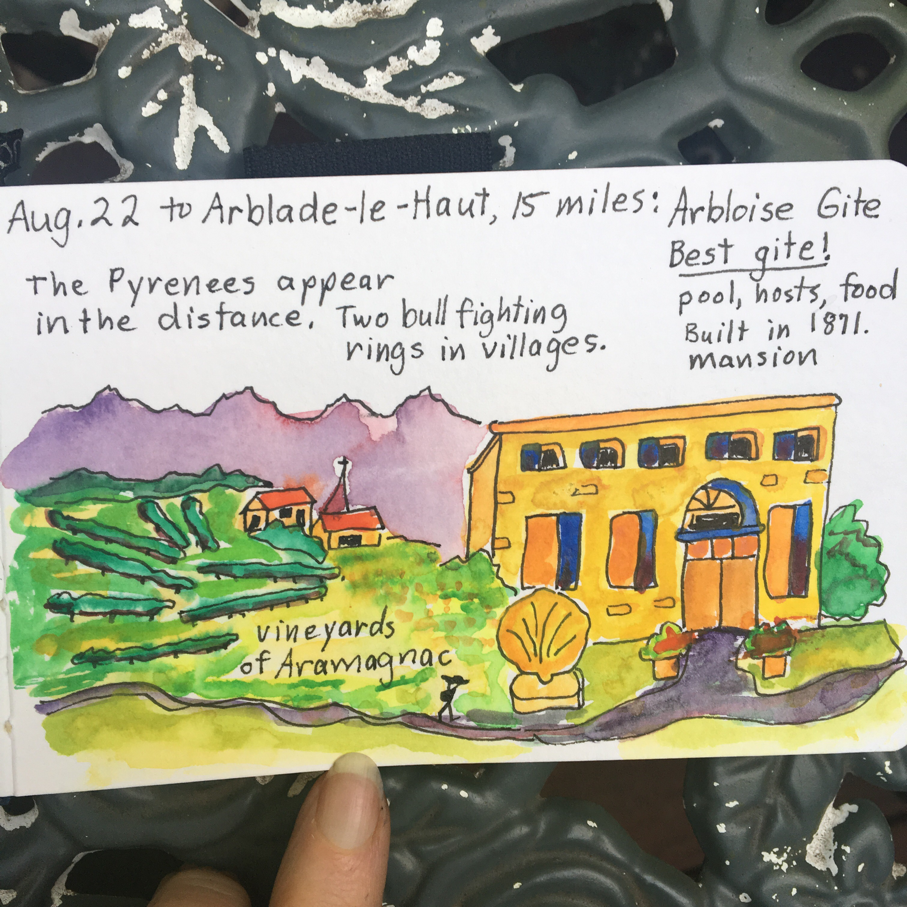 Aug. 22 to Arblade-le-Haut, 15 miles: Arbloise Gite
Best gite!
pool, hosts, food
Built in 1871.
mansion
The Pyrenees appear
in the distance. Two bull fighting
rings in villages.
vineyards
of Aramagnac